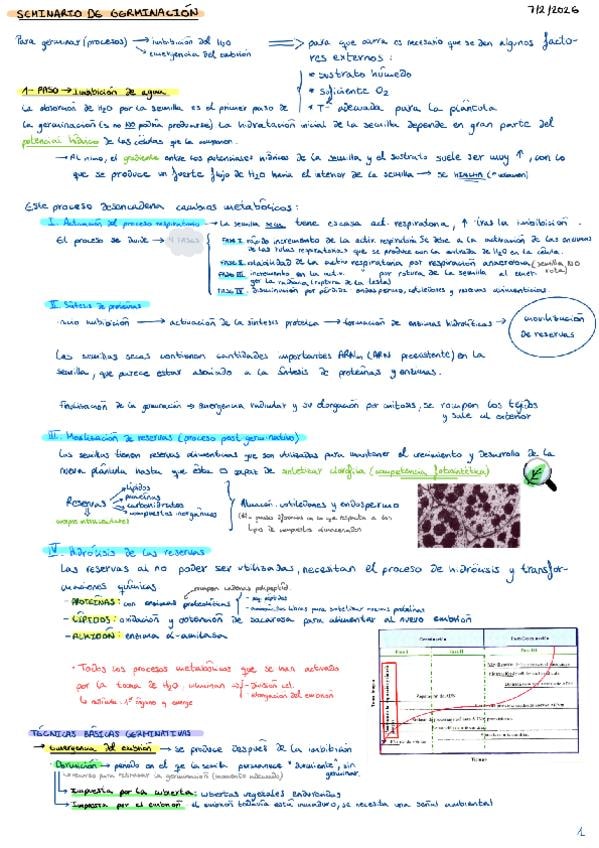 SEMINARIO DE GERMINACIÓN
7/2/2026
Para germinar (procesos) → imbibición del H2O
→ emergencia del embrión
⇒ para que ocurra es necesario que se den algunos factores
externos:
* sustrato húmedo
* suficiente O2
* Tª adecuada para la plántula
1- PASO → Imbibición de agua
La absorción de H2O por la semilla es el primer paso de
la germinación (s no NO podría producirse) La hidratación inicial de la semilla depende en gran parte del
potencial hídrico de las células que la componen.
→ Al inicio, el gradiente entre los potenciales hídricos de la semilla y el sustrato suele ser muy ↑, con lo
que se produce un fuerte flujo de H2O hacia el interior de la semilla → se HINCHA
Este proceso desencadena cambios metabólicos:
I. Activación del proceso respiratorio → La semilla seca tiene escasa act. respiratoria, ↑ tras la imbibición.
El proceso se divide → 4 FASES
FASE I. rápido incremento de la activ. respiratoria Se debe a la activación de las enzimas
de las rutas respiratorias que se produce con la entrada de H2O en la célula.
FASE II. estabilidad de la activ respiratoria por respiración anaerobia (semilla NO
rota)
FASE III. incremento en la act.r por rotura de la semilla al emer-
ger la radícula (ruptura de la testa)
FASE IV. disminución por pérdida endospermo, cotiledones y reservas alimenticias.
II. Síntesis de proteínas
inicio imbibición → activación de la síntesis proteica → formación de enzimas hidrolíticas → movilización
de reservas
Las semillas secas contienen cantidades importantes ARNm (ARN preexistente) en la
semilla, que parece estar asociado a la síntesis de proteínas y enzimas.
Finalización de la germinación → emergencia radicular y su elongación por mitosis, se rompen los tejidos
y sale al exterior
III. Movilización de reservas (proceso post germinativo)
Las semillas tienen reservas alimenticias que son utilizadas para mantener el crecimiento y desarrollo de la
nueva plántula hasta que ésta es capaz de sintetizar clorofila (competencia fotosintética)
Reservas
lípidos
proteínas
carbohidratos
compuestos inorgánicos
Almacén. cotiledones y endospermo
tipo de compuestos almacenados
IV. Hidrólisis de las reservas
Las reservas al no poder ser utilizadas, necesitan el proceso de hidrólisis y transfor-
maciones químicas
rompen cadenas polipeptid.
- PROTEÍNAS: con enzimas proteolíticas
- aminoácidos libres para sintetizar nuevas proteínas
- LÍPIDOS: oxidación y obtención de sacarosa para alimentar al nuevo embrión
- ALMIDÓN: enzima α-amilasa
* Todos los procesos metabólicos que se han activado
por la toma de H2O culminan → - división cel.
- elongación del embrión
↳ radícula: 1º órgano q emerge
Germinación
Postgerminación
Fase I
Fase II
Fase III
Reparación de ADN
Tiempo
TÉCNICAS BÁSICAS GERMINATIVAS
→ emergencia del embrión → se produce después de la imbibición
Dormición → periodo en el q la semilla permanece "durmiente", sin
germinar.
→ Impuesta por la cubierta: cubiertas vegetales endurecidas
→ Impuesta por el embrión el embrión todavía está inmaduro, se necesita una señal ambiental
1